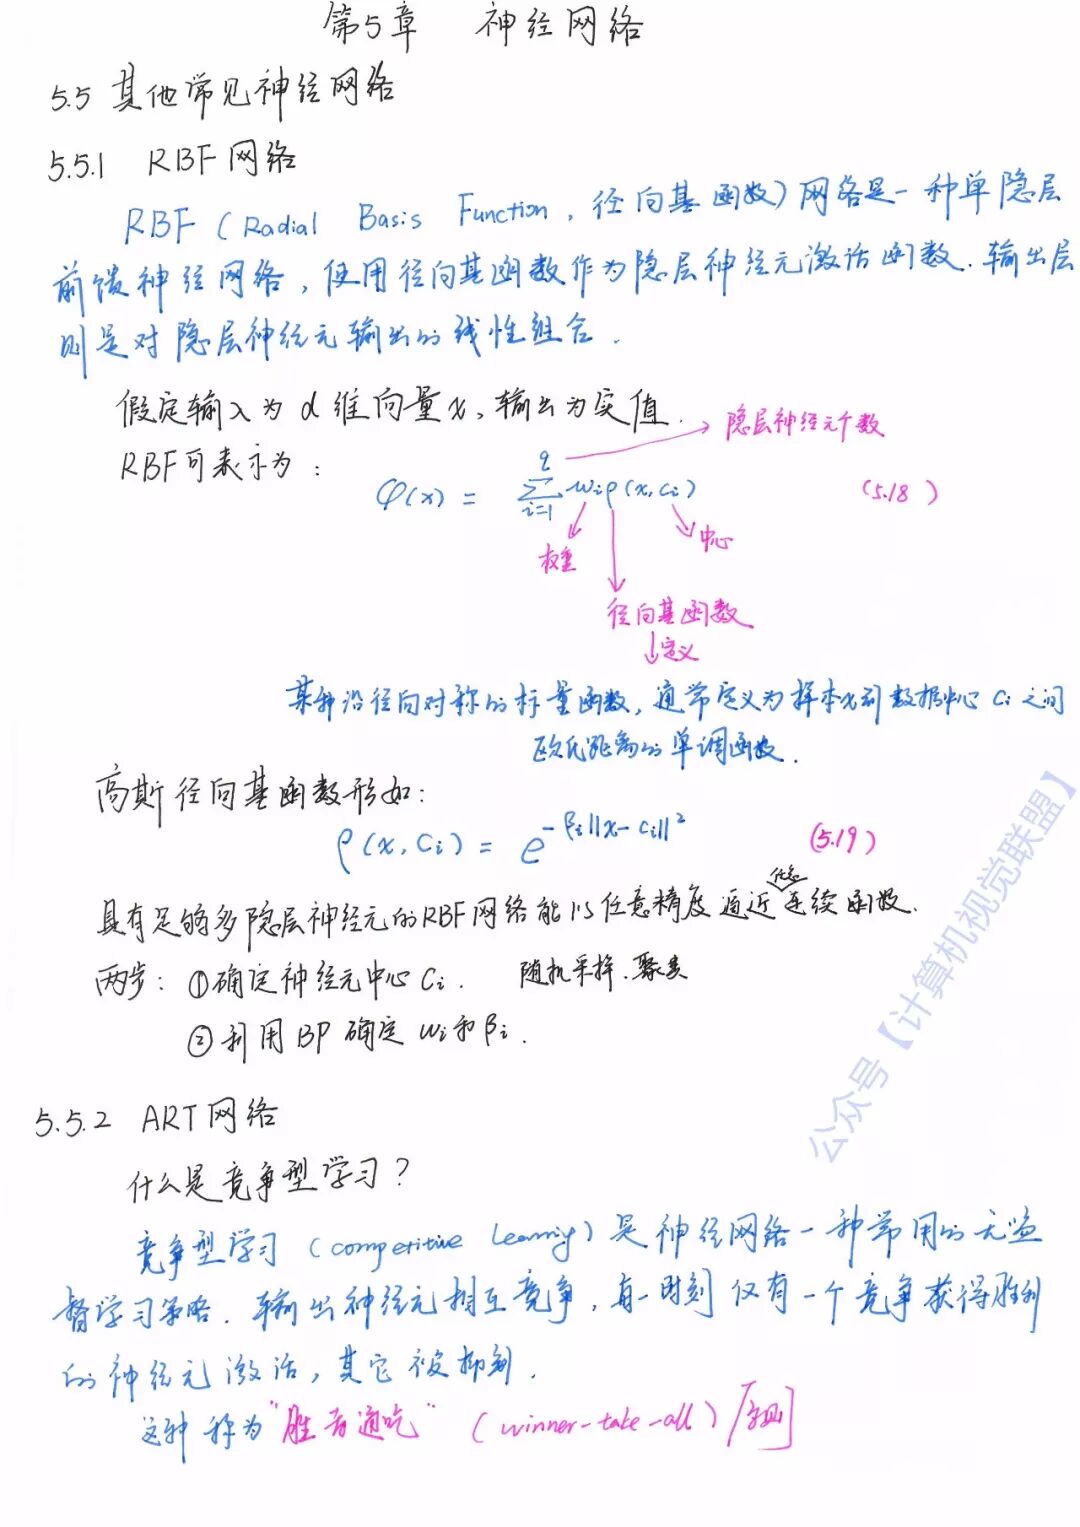 第5章 神经网络
5.5 其他常见神经网络
5.5.1 RBF网络
RBF（Radial Basis Function，径向基函数）网络是一种单隐层
前馈神经网络，使用径向基函数作为隐层神经元激活函数．输出层
则是对隐层神经元输出的线性组合．
假定输入为d维向量x，输出为实值．
隐层神经元个数
RBF可表示为：
φ(x) = ∑_{i=1}^{q} wᵢρ(x,cᵢ) (5.18)
权重
中心
径向基函数
定义
某种沿径向对称的标量函数，通常定义为样本x到数据中心cᵢ之间
欧氏距离的单调函数．
高斯径向基函数形如：
ρ(x, cᵢ) = e^{-βᵢ||x-cᵢ||²} (5.19)
具有足够多隐层神经元的RBF网络能以任意精度逼近任意连续函数．
两步：①确定神经元中心cᵢ． 随机采样．聚类
②利用BP确定wᵢ和βᵢ．
5.5.2 ART网络
什么是竞争型学习？
竞争型学习（competitive learning）是神经网络一种常用的无监
督学习策略．输出神经元相互竞争，每一时刻仅有一个竞争获得胜利
的神经元激活，其它被抑制．
这种称为"胜者通吃"（winner-take-all）原则
公众号【计算机视觉联盟】